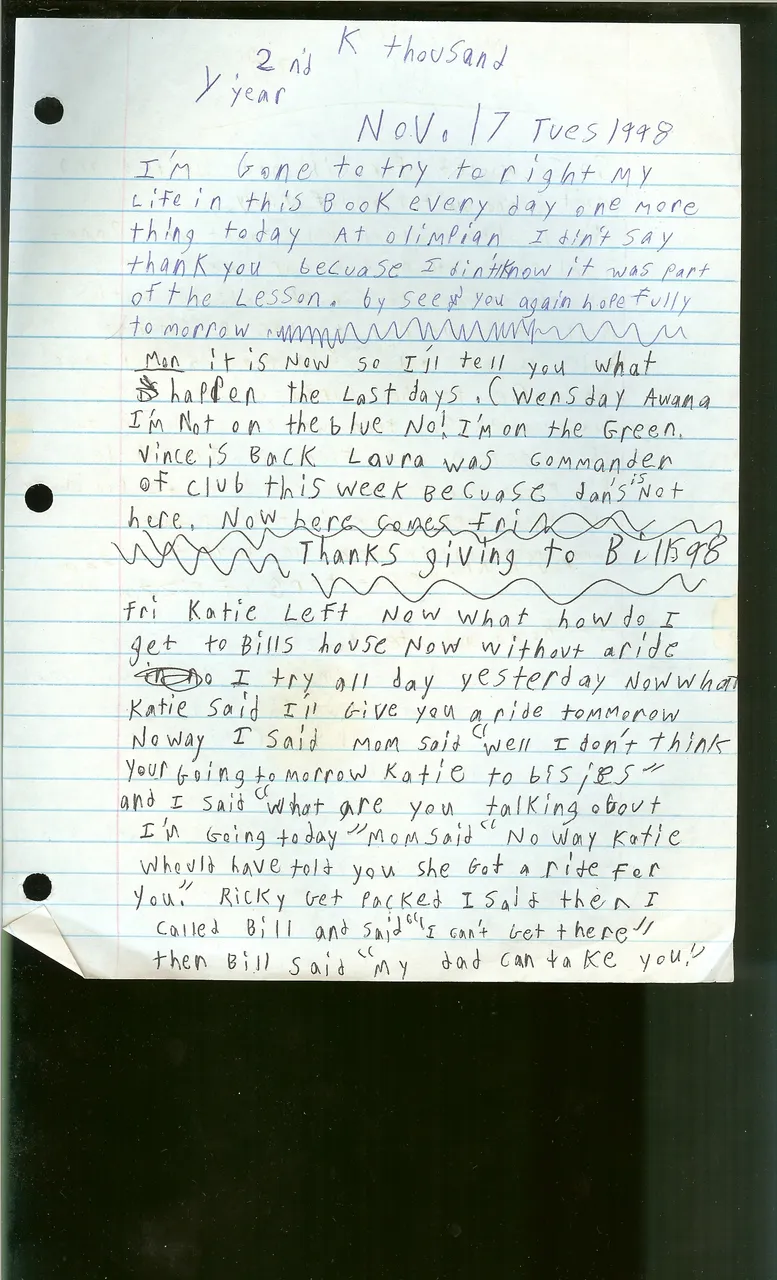 K thousand
2nd
Y year
Nov. 17 Tues 1998
I'm Gone to try to right my
Life in this Book every day one more
thing today At olimpian I din't say
thank you becuase I din't know it was part
of the Lesson. by see you again hopefully
to morrow
Mon it is Now so I'll tell you what
happen the Last days. (Wensday Awana
I'm Not on the blue No! I'm on the Green.
Vince is Back Laura was commander
of club this week Becuase dan's is Not
here. Now here comes Fri
Thanks giving to Bills 98
Fri Katie Left Now what how do I
get to Bills house Now without a ride
I try all day yesterday Now what
Katie said I'll Give you a ride tommorow
No way I said Mom said "well I don't think
your Going to morrow Katie to
and I said "what are you talking about
I'm Going today" Mom said "No way Katie
whould have told you she Got a ride For
you." Ricky Get Packed I said then I
called Bill and said "I can't Get there"
then Bill said "my dad can take you!"